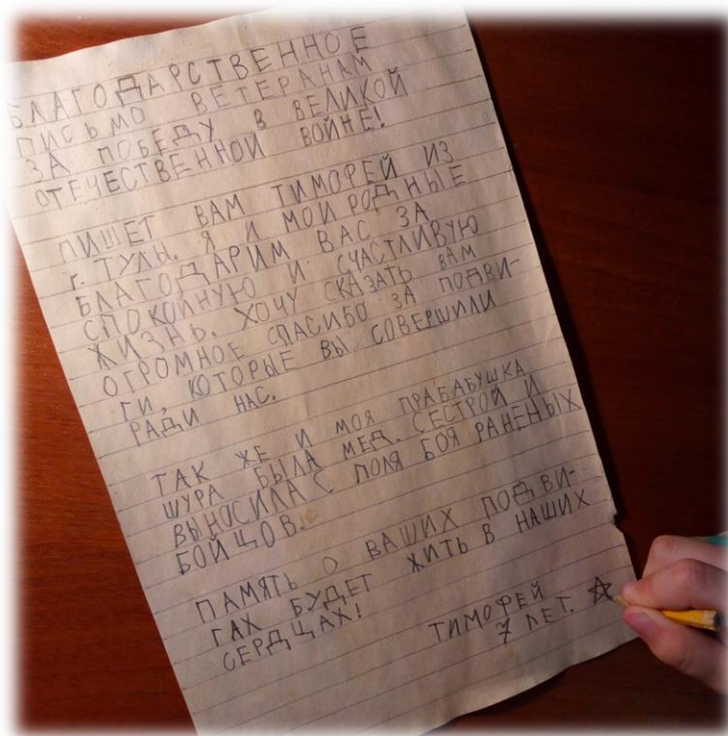 БЛАГОДАРСТВЕННОЕ
ПИСЬМО ВЕТЕРАНАМ
ЗА ПОБЕДУ В ВЕЛИКОЙ
ОТЕЧЕСТВЕННОЙ ВОЙНЕ!
ПИШЕТ ВАМ ТИМОФЕЙ ИЗ
г. ТУЛЫ. Я И МОИ РОДНЫЕ
БЛАГОДАРИМ ВАС ЗА
СПОКОЙНУЮ И СЧАСТЛИВУЮ
ЖИЗНЬ. ХОЧУ СКАЗАТЬ ВАМ
ОГРОМНОЕ СПАСИБО ЗА ПОДВИ-
ГИ, КОТОРЫЕ ВЫ СОВЕРШИЛИ
РАДИ НАС.
ТАК ЖЕ И МОЯ ПРАБАБУШКА
ШУРА БЫЛА МЕД. СЕСТРОЙ И
ВЫНОСИЛА С ПОЛЯ БОЯ РАНЕНЫХ
БОЙЦОВ.
ПАМЯТЬ О ВАШИХ ПОДВИ-
ГАХ БУДЕТ ЖИТЬ В НАШИХ
СЕРДЦАХ!
ТИМОФЕЙ
7 ЛЕТ.